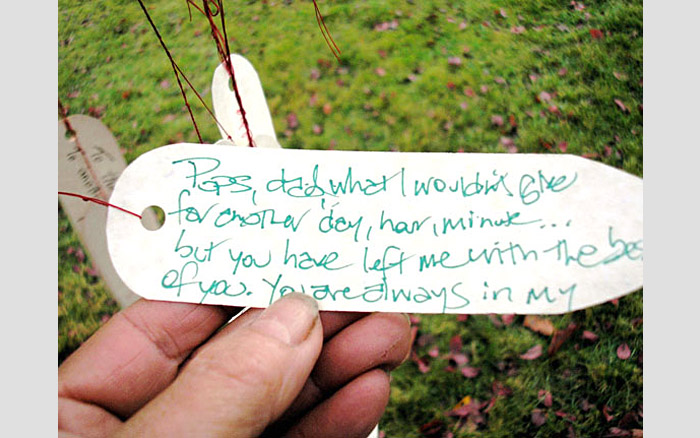 Pops, dad, what I wouldn't give
for another day, hour, minute...
but you have left me with the best
of you. You are always in my
To
To